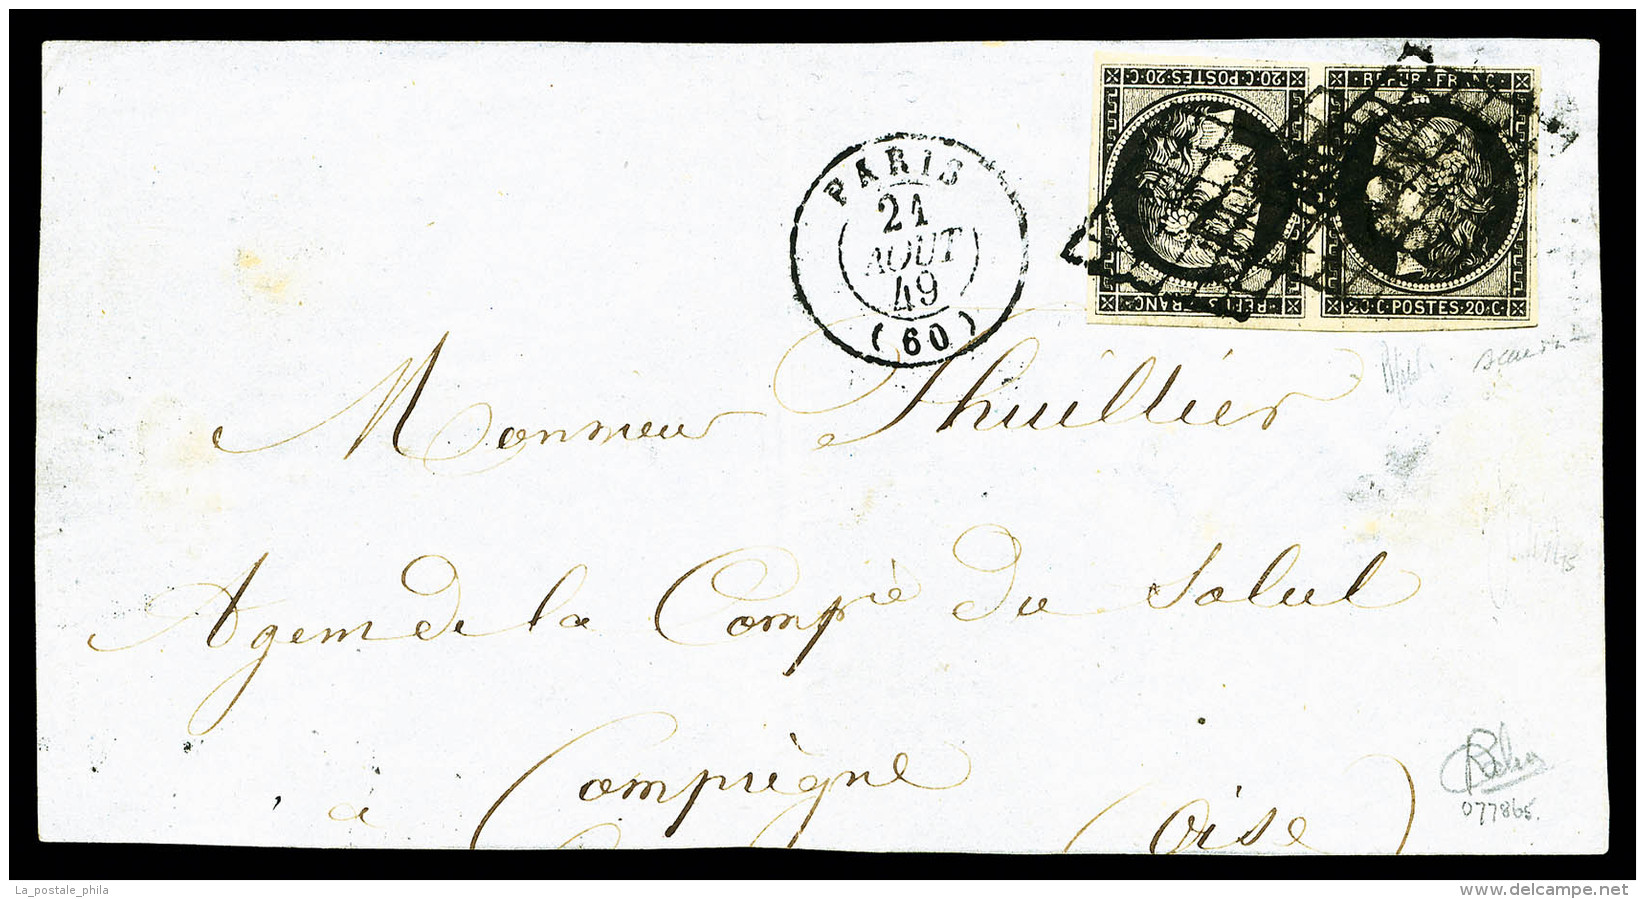 20·C·POSTES·20·C·
REPUB·FRANC·
REPUB·FRANC·
20·C·POSTES·20·C·
PARIS
21
AOUT
49
(60)
Monsieur Thuillier
Agent de la Compie Du Salut
à Compiègne
(Oise)
077865.
La_postale_phila
www.delcampe.net